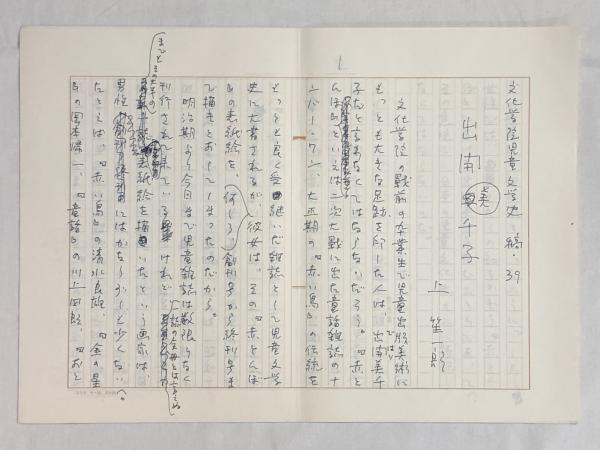 1
文化学院児童文学史 稿・39
出開美千子
上笙一郎
文化学院の戦前の卒業生で児童出版美術に
もっとも大きな足跡を印した人は、出開美千
子だと言わなくてはならないだろう。『赤と
んぼ』といえば二次大戦に出た童話雑誌のナ
ンバー・ワン、大正期の『赤い鳥』の伝統を
もっとも良く受け継いだ雑誌として児童文学
史に大書されるが、彼女は、その『赤とんぼ
』の表紙絵を、何しろ創刊号から終刊号ま
で描きとおしてしまったのだから。
明治期より今日まで児童雑誌は数限りなく
刊行されて来ているけれど、
表紙絵を描いたという画家は、
男性にはかならずしも少くない。
たとえば、『赤い鳥』の清水良雄、『金の星
』の岡本帰一、『童話』の川上四郎、『おと